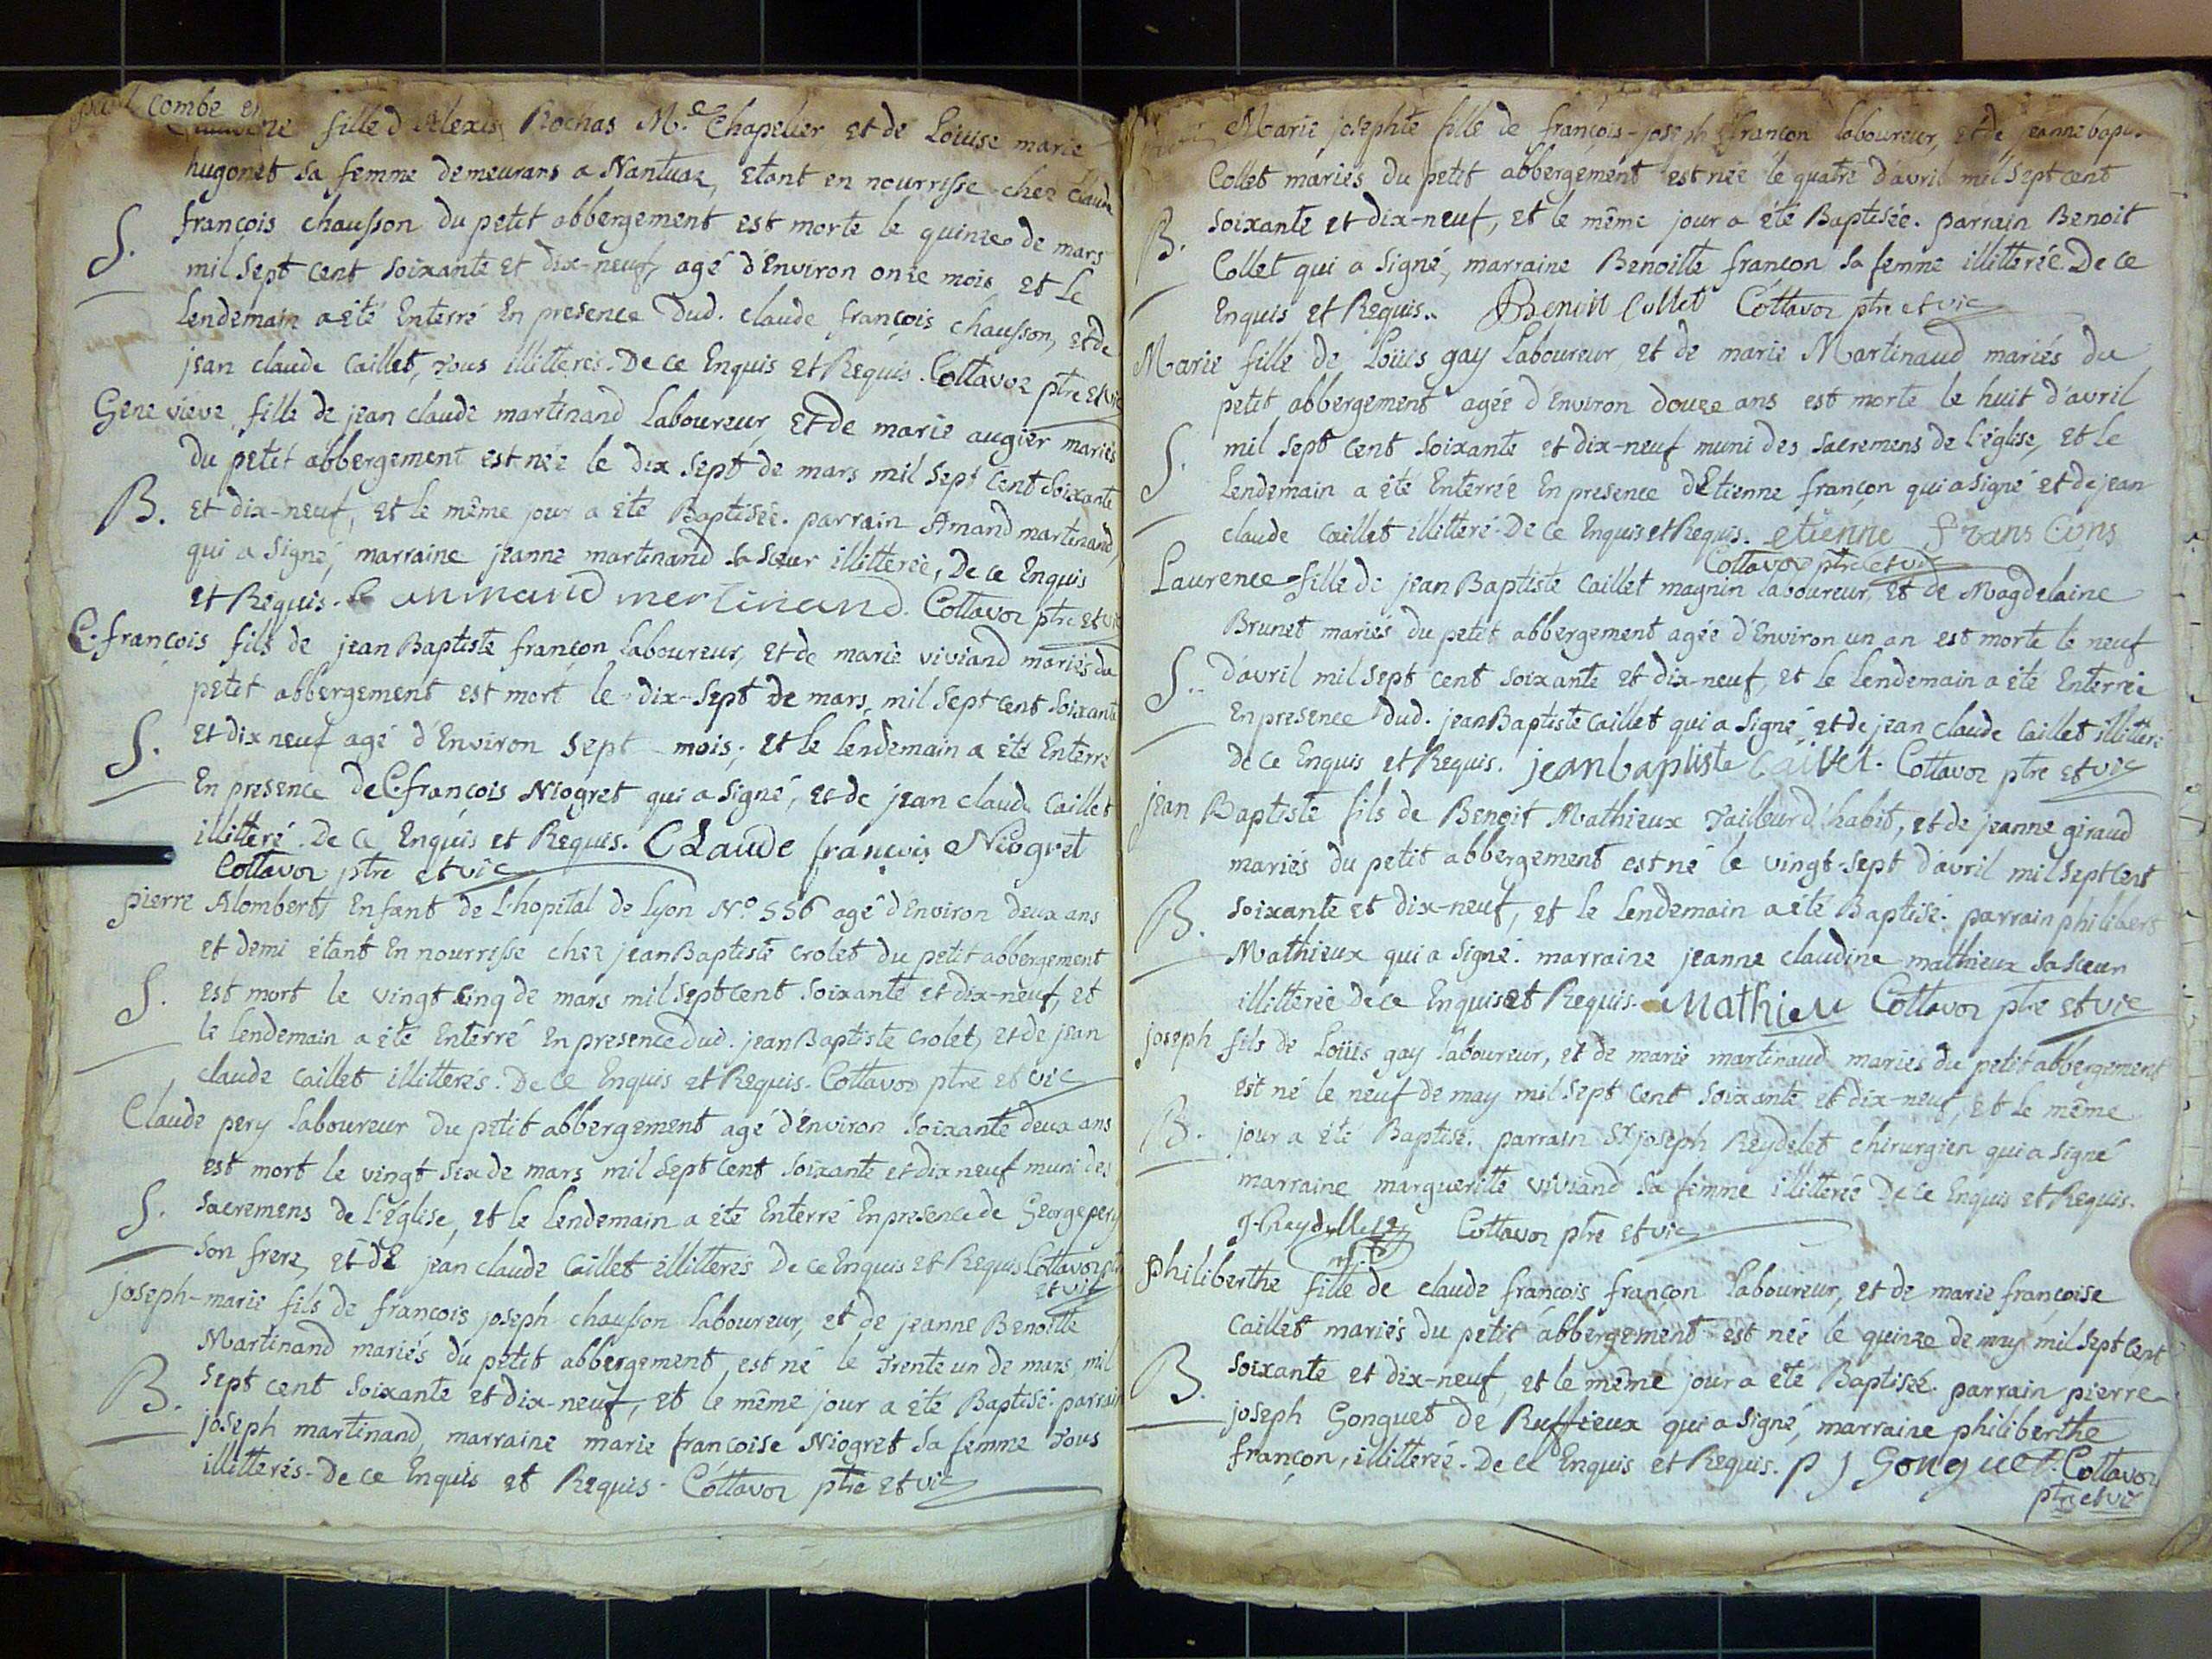 combe et
fille d Alexis Rochas M.e Chapelier, et de Loüise marie
hugonet sa femme demeurans a Nantua, etant en nourrisse chez claude
S. françois chausson du petit abbergement est morte le quinze de mars
mil sept cent soixante et dix-neuf, agé d'Environ onze mois et le
lendemain a eté Enterré En presence dud. claude françois chausson, et de
jean claude caillet, tous illitterés. De ce Enquis et Requis. Cottavoz ptre et vic
Geneviève fille de jean claude martinand Laboureur, et de marie augier mariés
du petit abbergement est née le dix sept de mars mil sept cent soixante
B. et dix-neuf, et le même jour a eté Baptisée. parrain Amand martinand,
qui a signé, marraine jeanne martinand sa sœur illitterée, De ce Enquis
et Requis. anmand mertinand. Cottavoz ptre et vic
C. françois fils de jean Baptiste françon laboureur, et de marie viviand mariés du
petit abbergement est mort le dix-sept de mars, mil sept cent soixante
S. et dix neuf agé d'Environ sept mois, et le lendemain a eté Enterré
En presence de C. françois Niogret qui a signé, et de jean claude caillet
illitteré. De ce Enquis et Requis. CLaude francois Niogret
Cottavoz ptre et vic
pierre Alombert Enfant de L'hopital de Lyon N.o 556 agé d'Environ deux ans
et demi étant En nourrisse chez jean Baptiste crolet du petit abbergement
S. est mort le vingt cinq de mars mil sept cent soixante et dix-neuf, et
le lendemain a eté Enterré En presence dud. jean Baptiste crolet, et de jean
claude caillet illitterés. De ce Enquis et Requis. Cottavoz ptre et vic
Claude pery Laboureur du petit abbergement agé d'Environ soixante deux ans
est mort le vingt six de mars mil sept cent soixante et dix neuf muni des
S. sacremens de L'église, et le lendemain a eté Enterré En presence de George pery
son frere, et de jean claude caillet illitterés De ce Enquis et Requis Cottavoz ptre
et vic
joseph-marie fils de françois joseph chausson laboureur, et de jeanne Benoitte
Martinand mariés du petit abbergement, est né le trente un de mars, mil
B. sept cent soixante et dix-neuf, et le même jour a eté Baptisé. parrain
joseph martinand, marraine marie françoise Niogret sa femme tous
illitterés. De ce Enquis et Requis. Cottavoz ptre et vic
Marie josephte fille de françois-joseph françon laboureur, et de jeanne bap.
Collet mariés du petit abbergement est née le quatre d'avril mil sept cent
B. soixante et dix-neuf, et le même jour a été Baptisée. parrain Benoit
Collet qui a signé, marraine Benoitte françon sa femme illitterée. De ce
Enquis et Requis. Benoit Collet Cottavoz ptre et vic
Marie fille de Loüis gay Laboureur et de marie Martinaud mariés du
petit abbergement agée d'Environ douze ans est morte le huit d'avril
S. mil sept cent soixante et dix-neuf muni des sacremens de l'église, et le
Lendemain a eté Enterrée En presence d'Etienne françon qui a signé et de jean
claude caillet illitteré. De ce Enquis et Requis. etienne frans Cons
Cottavoz ptre et vic
Laurence fille de jean Baptiste caillet magnin laboureur, et de Magdelaine
Brunet mariés du petit abbergement agée d'Environ un an est morte le neuf
S. d'avril mil sept cent soixante et dix-neuf, et le lendemain a été Enterrée
En presence dud. jean Baptiste caillet qui a signé, et de jean claude caillet illitteré
de ce Enquis et Requis. jean baptiste caillet. Cottavoz ptre et vic
jean Baptiste fils de Benoit Mathieux tailleur d'habit, et de jeanne giraud
mariés du petit abbergement est né le vingt-sept d'avril mil sept cent
B. soixante et dix-neuf, et le lendemain a eté Baptisé. parrain philibert
Mathieux qui a signé. marraine jeanne claudine mathieux sa sœur
illitterée De ce Enquis et Requis. Mathieu Cottavoz ptre et vic
joseph fils de Loüis gay laboureur, et de marie martinaud mariés du petit abbergement
est né le neuf de may mil sept cent soixante et dix-neuf, et le même
B. jour a eté Baptisé. parrain Sr joseph Reydelet chirurgien qui a signé
marraine marguerite viviand sa femme illitterée De ce Enquis et Requis.
J. Reydellet Cottavoz ptre et vic
philiberthe fille de claude françois françon Laboureur, et de marie françoise
Caillet mariés du petit abbergement est née le quinze de may mil sept cent
B. soixante et dix-neuf, et le même jour a eté Baptisée. parrain pierre
joseph Gonguet de Ruffieux qui a signé, marraine philiberthe
françon, illitterée. De ce Enquis et Requis. p J Gonguet. Cottavoz
ptre et vic